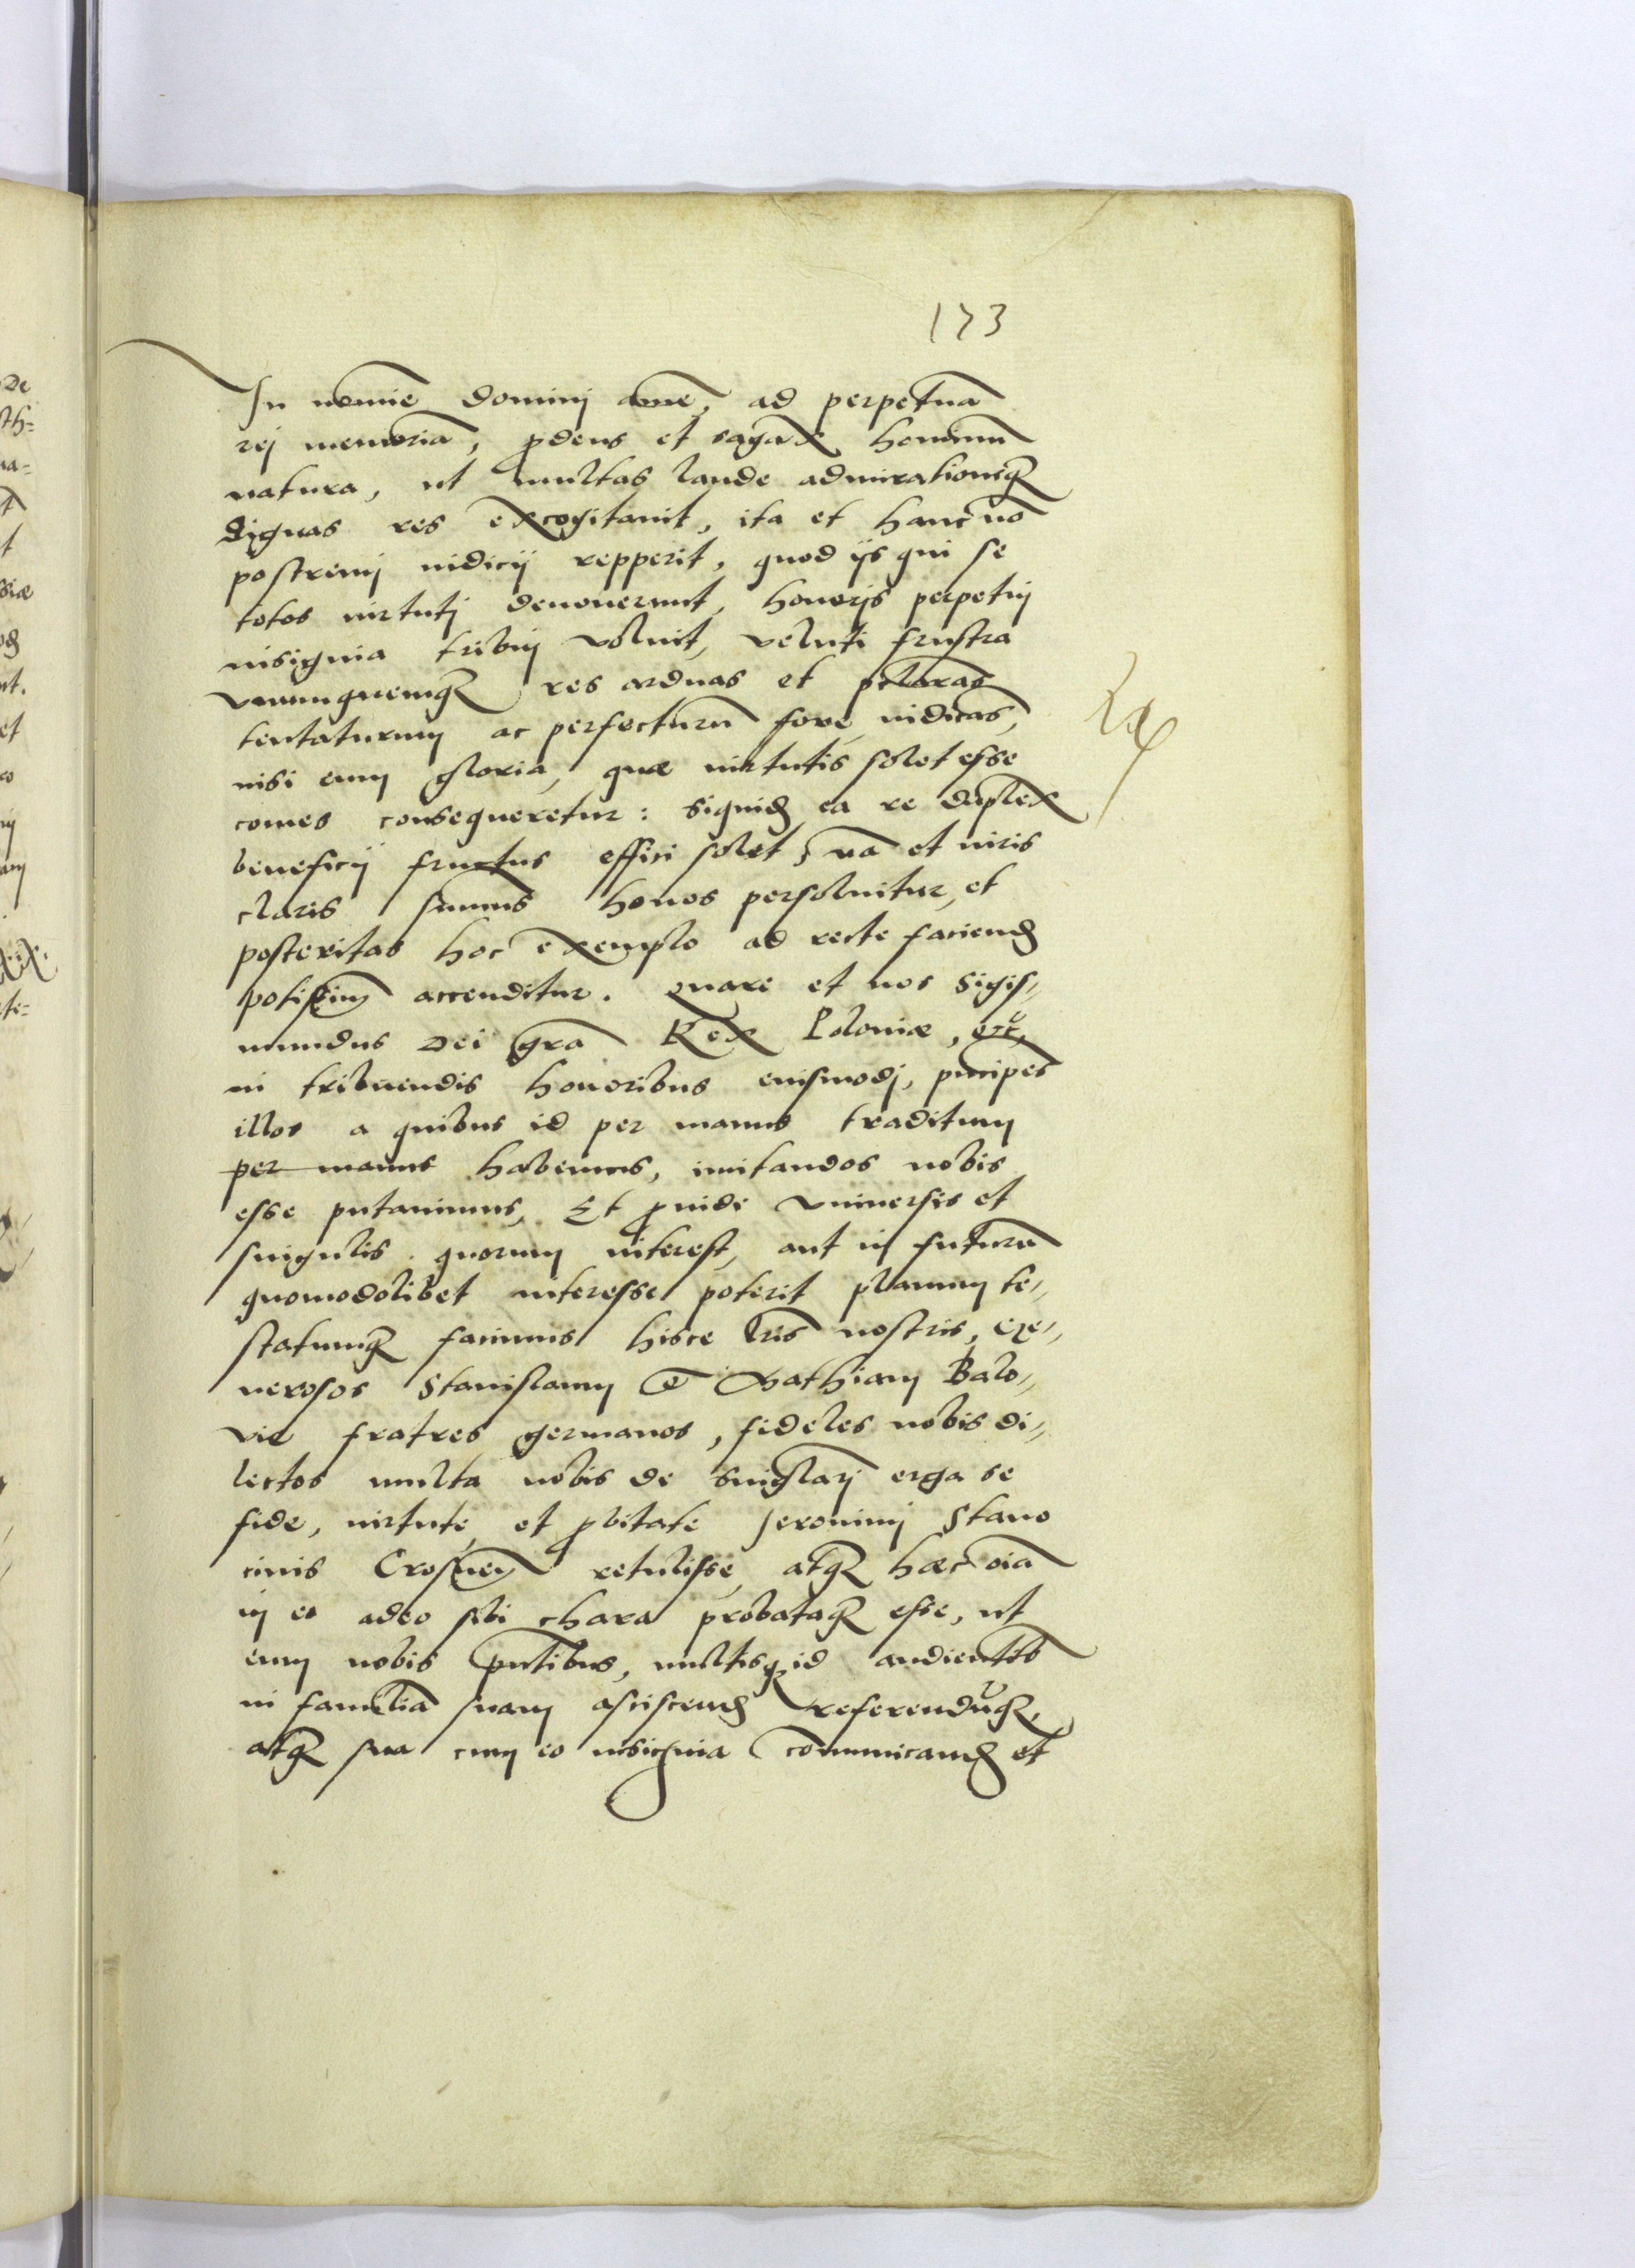 173
In nomine domini ame, ad perpetuã
rej memoriã, prudens et sagax hominum
natura, ut multas laude admirationeq3
dignas res excogitauit, ita et hanc nõ
postremj iudicij repperit, quod ijs qui se
totos uirtutj deuouerunt, honoris perpetuj
insignia tribuj voluit, veluti frustra
vnumquemq3 res arduas et pclaras
tentaturum ac perfecturũ fore iudicãs,
nisi eum gloria, quæ uirtutis solet esse
comes consequeretur: siquid ea re duplex
beneficij fructus effici solet, nã et uiris
claris sum̃us honos persoluitur, et
posteritas hoc exemplo ad recte faciend
potissim̃ accenditur. Quare et nos Sigis„
mundus Dei grã Rex Poloniæ, etc,
in tribuendis honoribus eiusmodj, pncipes
illos a quibus id per manus traditum
per manus habemus, imitandos nobis
esse putauimus, Et prouidi vniuersis et
singulis quorum interest, aut in futurũ
quomodolibet interesse poterit planum te„
statumq3 facimus hisce lris nostris, Ge„
nerosos Stanislaum et Mathiam Balo„
vie fratres germanos, fideles nobis di„
lectos multa nobis de singlarj erga se
fide, uirtute, et probitate Jeronimj Stano
ciuis Crosneñ retulisse, atq3 hæc oĩa
in eo adeo sibi chara probataq3 esse, ut
eum nobis pñtibus, multisq3 id audientibus
in familiã suam asciscend referendũq3,
atq3 sua cum eo insignia comunicand et